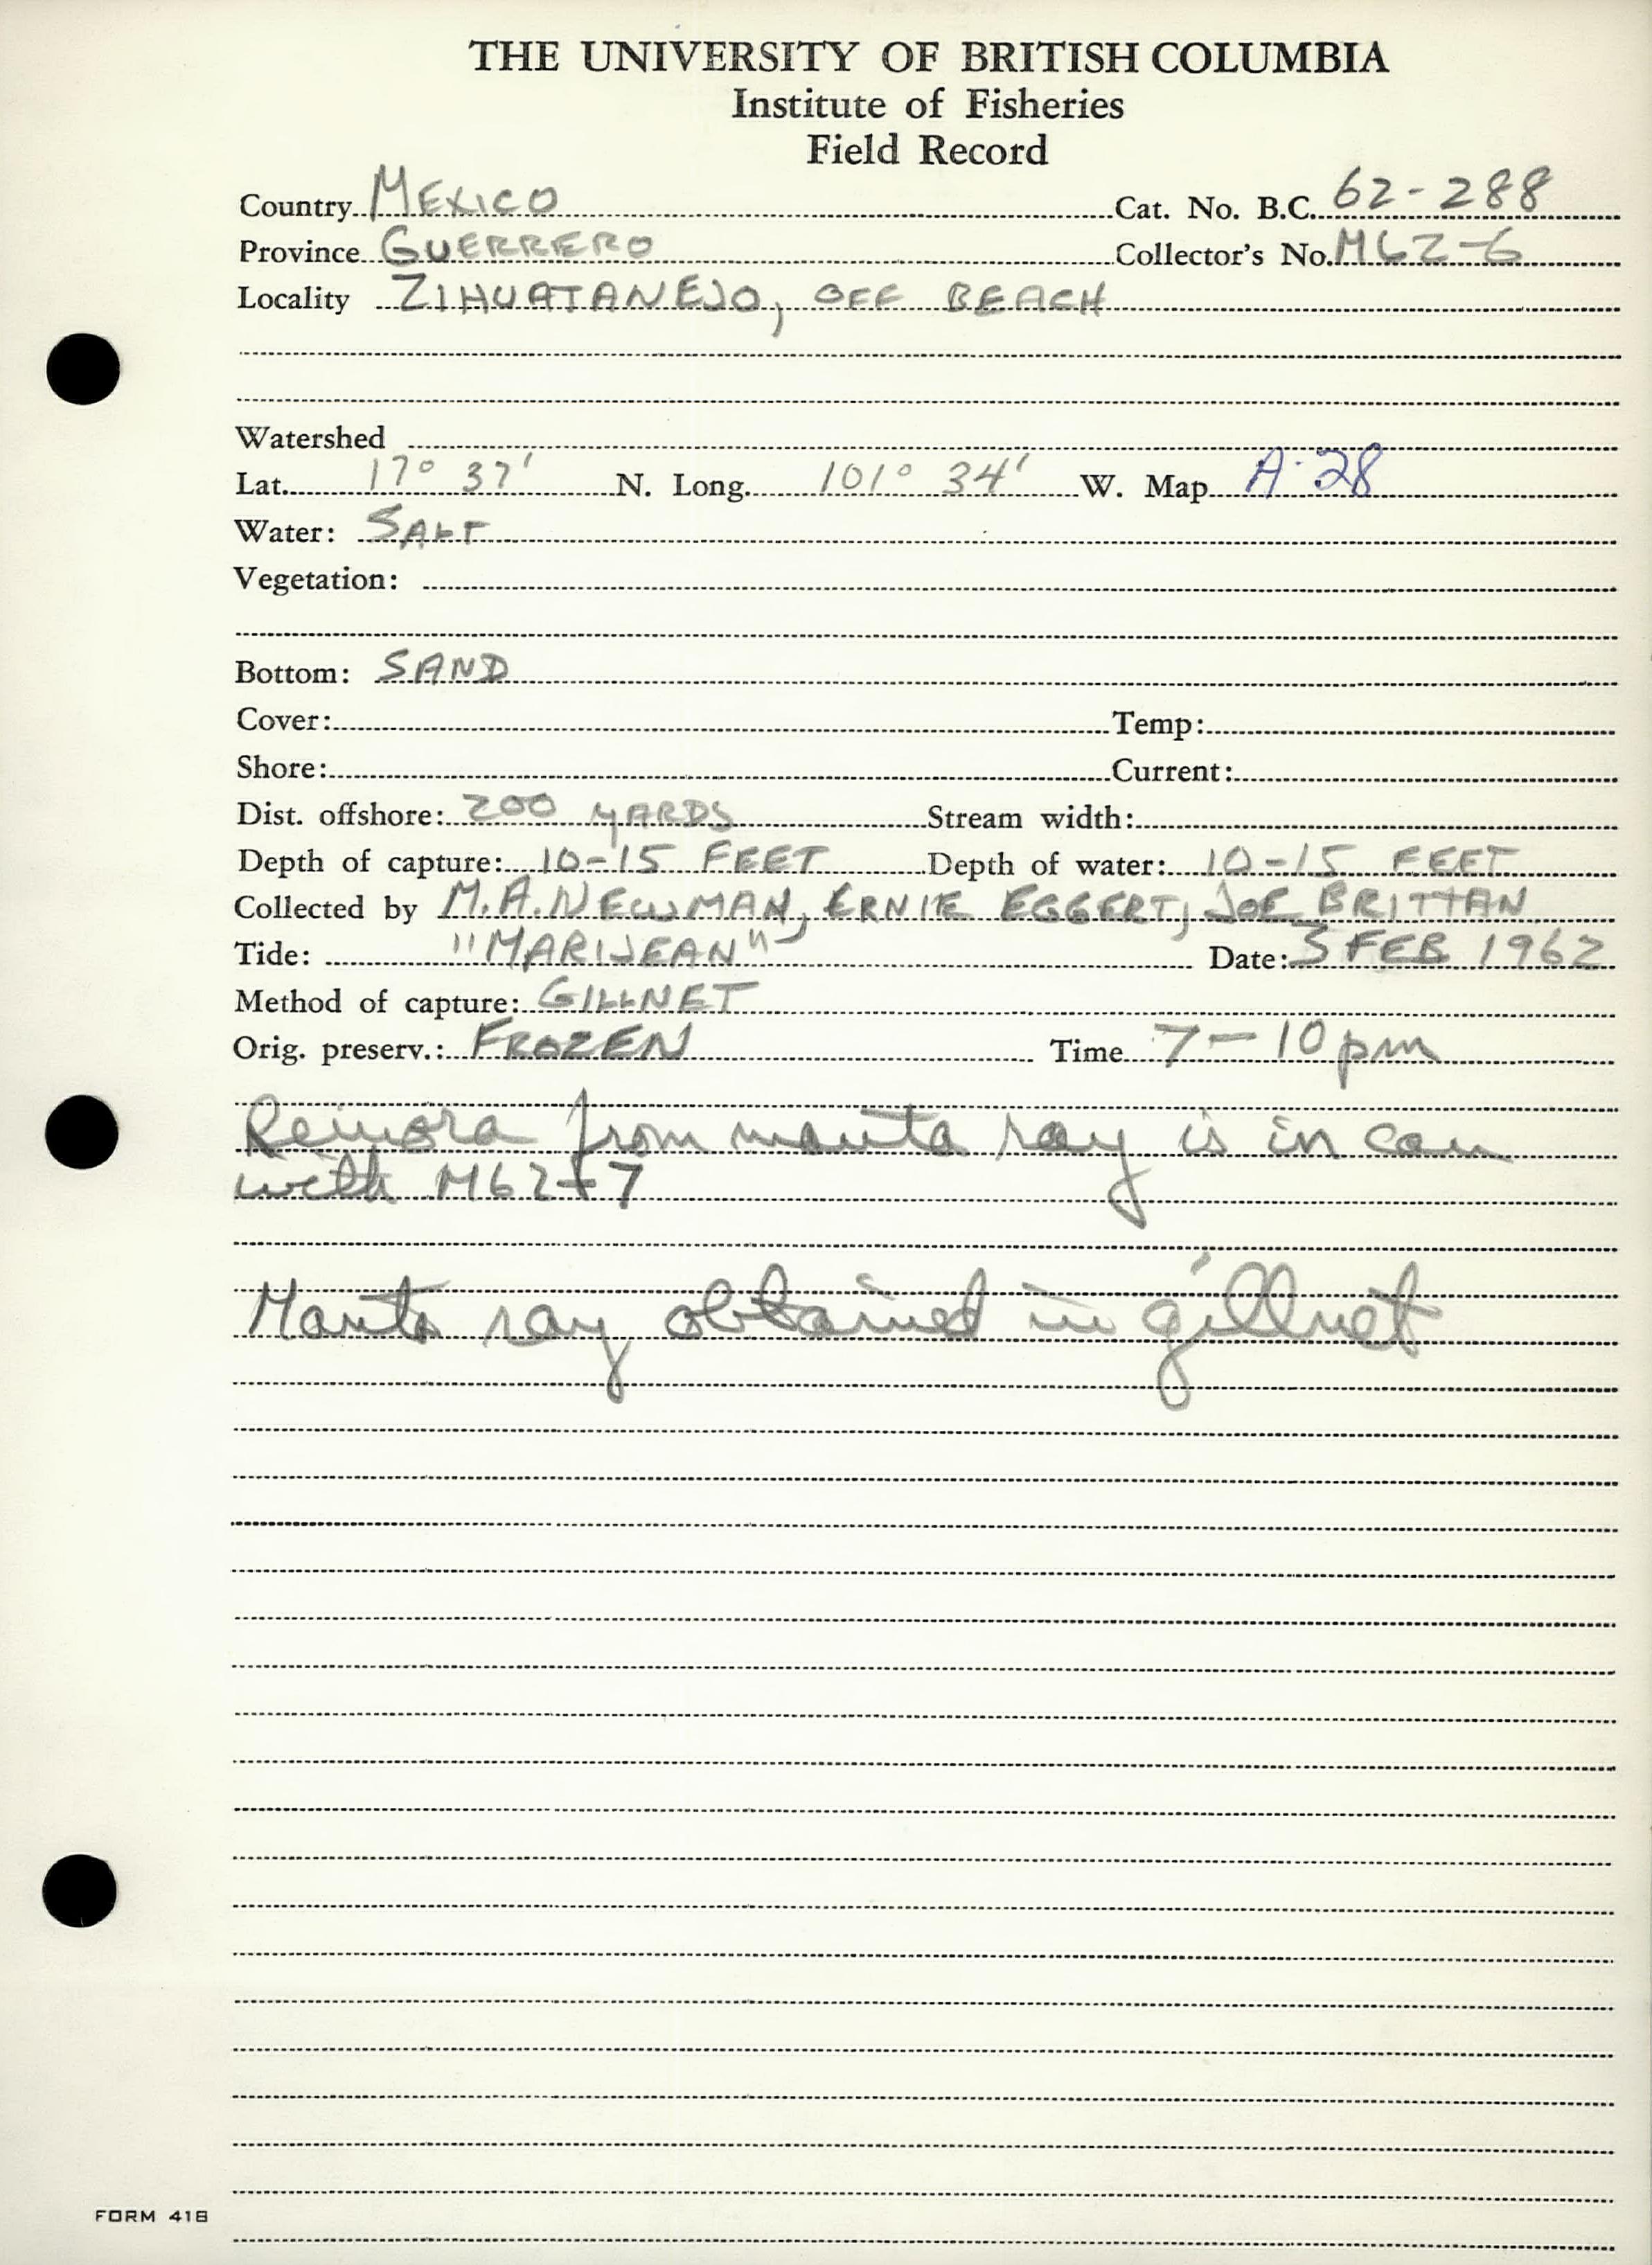 THE UNIVERSITY OF BRITISH COLUMBIA
Institute of Fisheries
Field Record
Country MEXICO Cat. No. B.C. 62-288
Province GUERRERO Collector's No. M62-6
Locality ZIHUATANEJO, OFF BEACH
Watershed
Lat. 17° 37' N. Long. 101° 34' W. Map A-28
Water: SALT
Vegetation:
Bottom: SAND
Cover: Temp:
Shore: Current:
Dist. offshore: 200 YARDS Stream width:
Depth of capture: 10-15 FEET Depth of water: 10-15 FEET
Collected by M.A. NEWMAN, ERNIE EGGERT, JOE BRITTAN
Tide: "MARIJEAN" Date: 3 FEB 1962
Method of capture: GILLNET
Orig. preserv.: FROZEN Time 7-10 pm
Remora from manta ray is in can
with M62-7
Manta ray obtained in gillnet
FORM 418